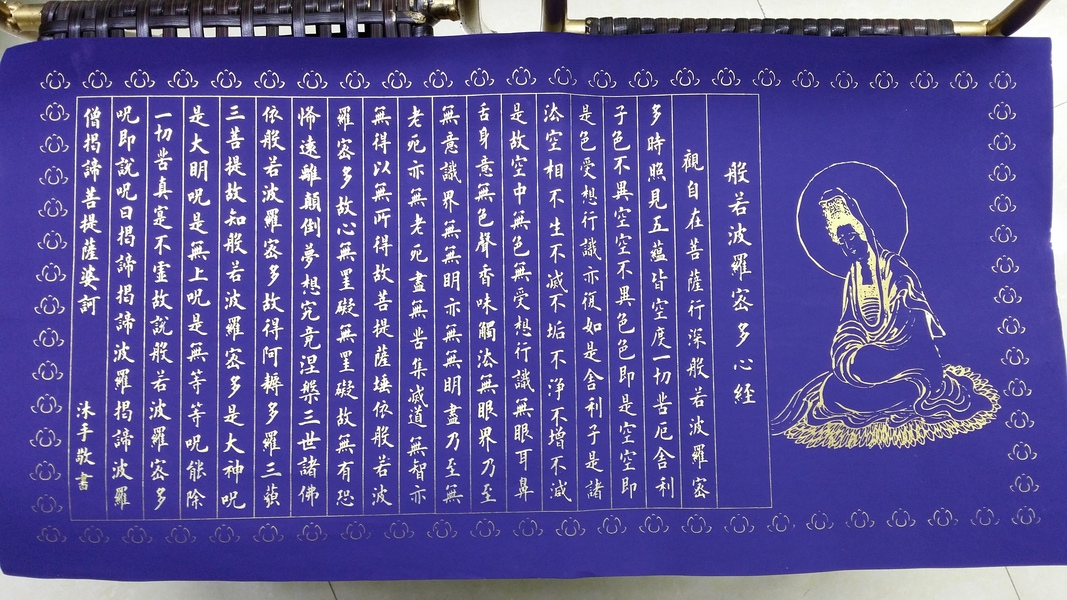 般若波羅密多心経
觀自在菩薩行深般若波羅密
多時照見五蘊皆空度一切苦厄舍利
子色不異空空不異色色即是空空即
是色受想行識亦復如是舍利子是諸
法空相不生不滅不垢不淨不增不減
是故空中無色無受想行識無眼耳鼻
舌身意無色聲香味觸法無眼界乃至
無意識界無無明亦無無明盡乃至無
老死亦無老死盡無苦集滅道無智亦
無得以無所得故菩提薩埵依般若波
羅密多故心無罣礙無罣礙故無有恐
怖遠離顛倒夢想究竟涅槃三世諸佛
依般若波羅密多故得阿耨多羅三藐
三菩提故知般若波羅密多是大神呪
是大明呪是無上呪是無等等呪能除
一切苦真實不虛故說般若波羅密多
呪即說呪曰揭諦揭諦波羅揭諦波羅
僧揭諦菩提薩婆訶
沐手敬書